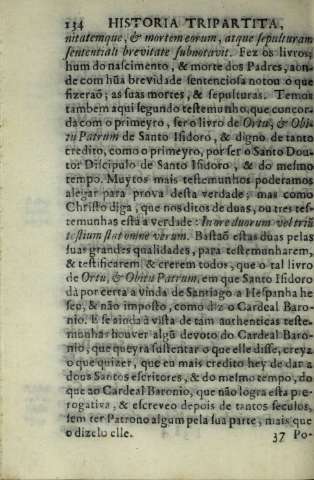 134 HISTORIA TRIPARTITA,
nitatemque, & mortem eorum, atque sepulturam
sententiali brevitate subnotavit. Fez os livros,
hum do nascimento, & morte dos Padres, aon-
de com hũa brevidade sentenciosa notou o que
fizeraõ; as suas mortes, & sepulturas. Temos
tambem aqui segundo testemunho, que concor-
da com o primeyro, ser o livro de Ortu, & Obi-
tu Patrum de Santo Isidoro, & digno de tanto
credito, como o primeyro, por ser o Santo Dou-
tor Discipulo de Santo Isidoro, & do mesmo
tempo. Muytos mais testemunhos poderamos
alegar para prova desta verdade; mas como
Christo diga, que nos ditos de duas, ou tres tes-
temunhas està a verdade: In ore duorum vel triũ
testium stat omne verum. Bastaõ estas duas pelas
suas grandes qualidades, para testemunharem,
& testificarem, & crerem todos, que o tal livro
de Ortu, & Obitu Patrum, em que Santo Isidoro
dà por certa a vinda de Santiago a Hespanha he
seu, & não imposto, como diz o Cardeal Baro-
nio. E se ainda à vista de tam authenticas teste-
munhas houver algũ devoto do Cardeal Baro-
nio, que queyra sustentar o que elle disse, creya
o que quizer, que eu mais credito hey de dar a
dous Santos escritores, & do mesmo tempo, do
que ao Cardeal Baronio, que não logra esta pre-
rogativa, & escreveo depois de tantos seculos,
sem ter Patrono algum pela sua parte, mais que
o dizelo elle.
37 Po-